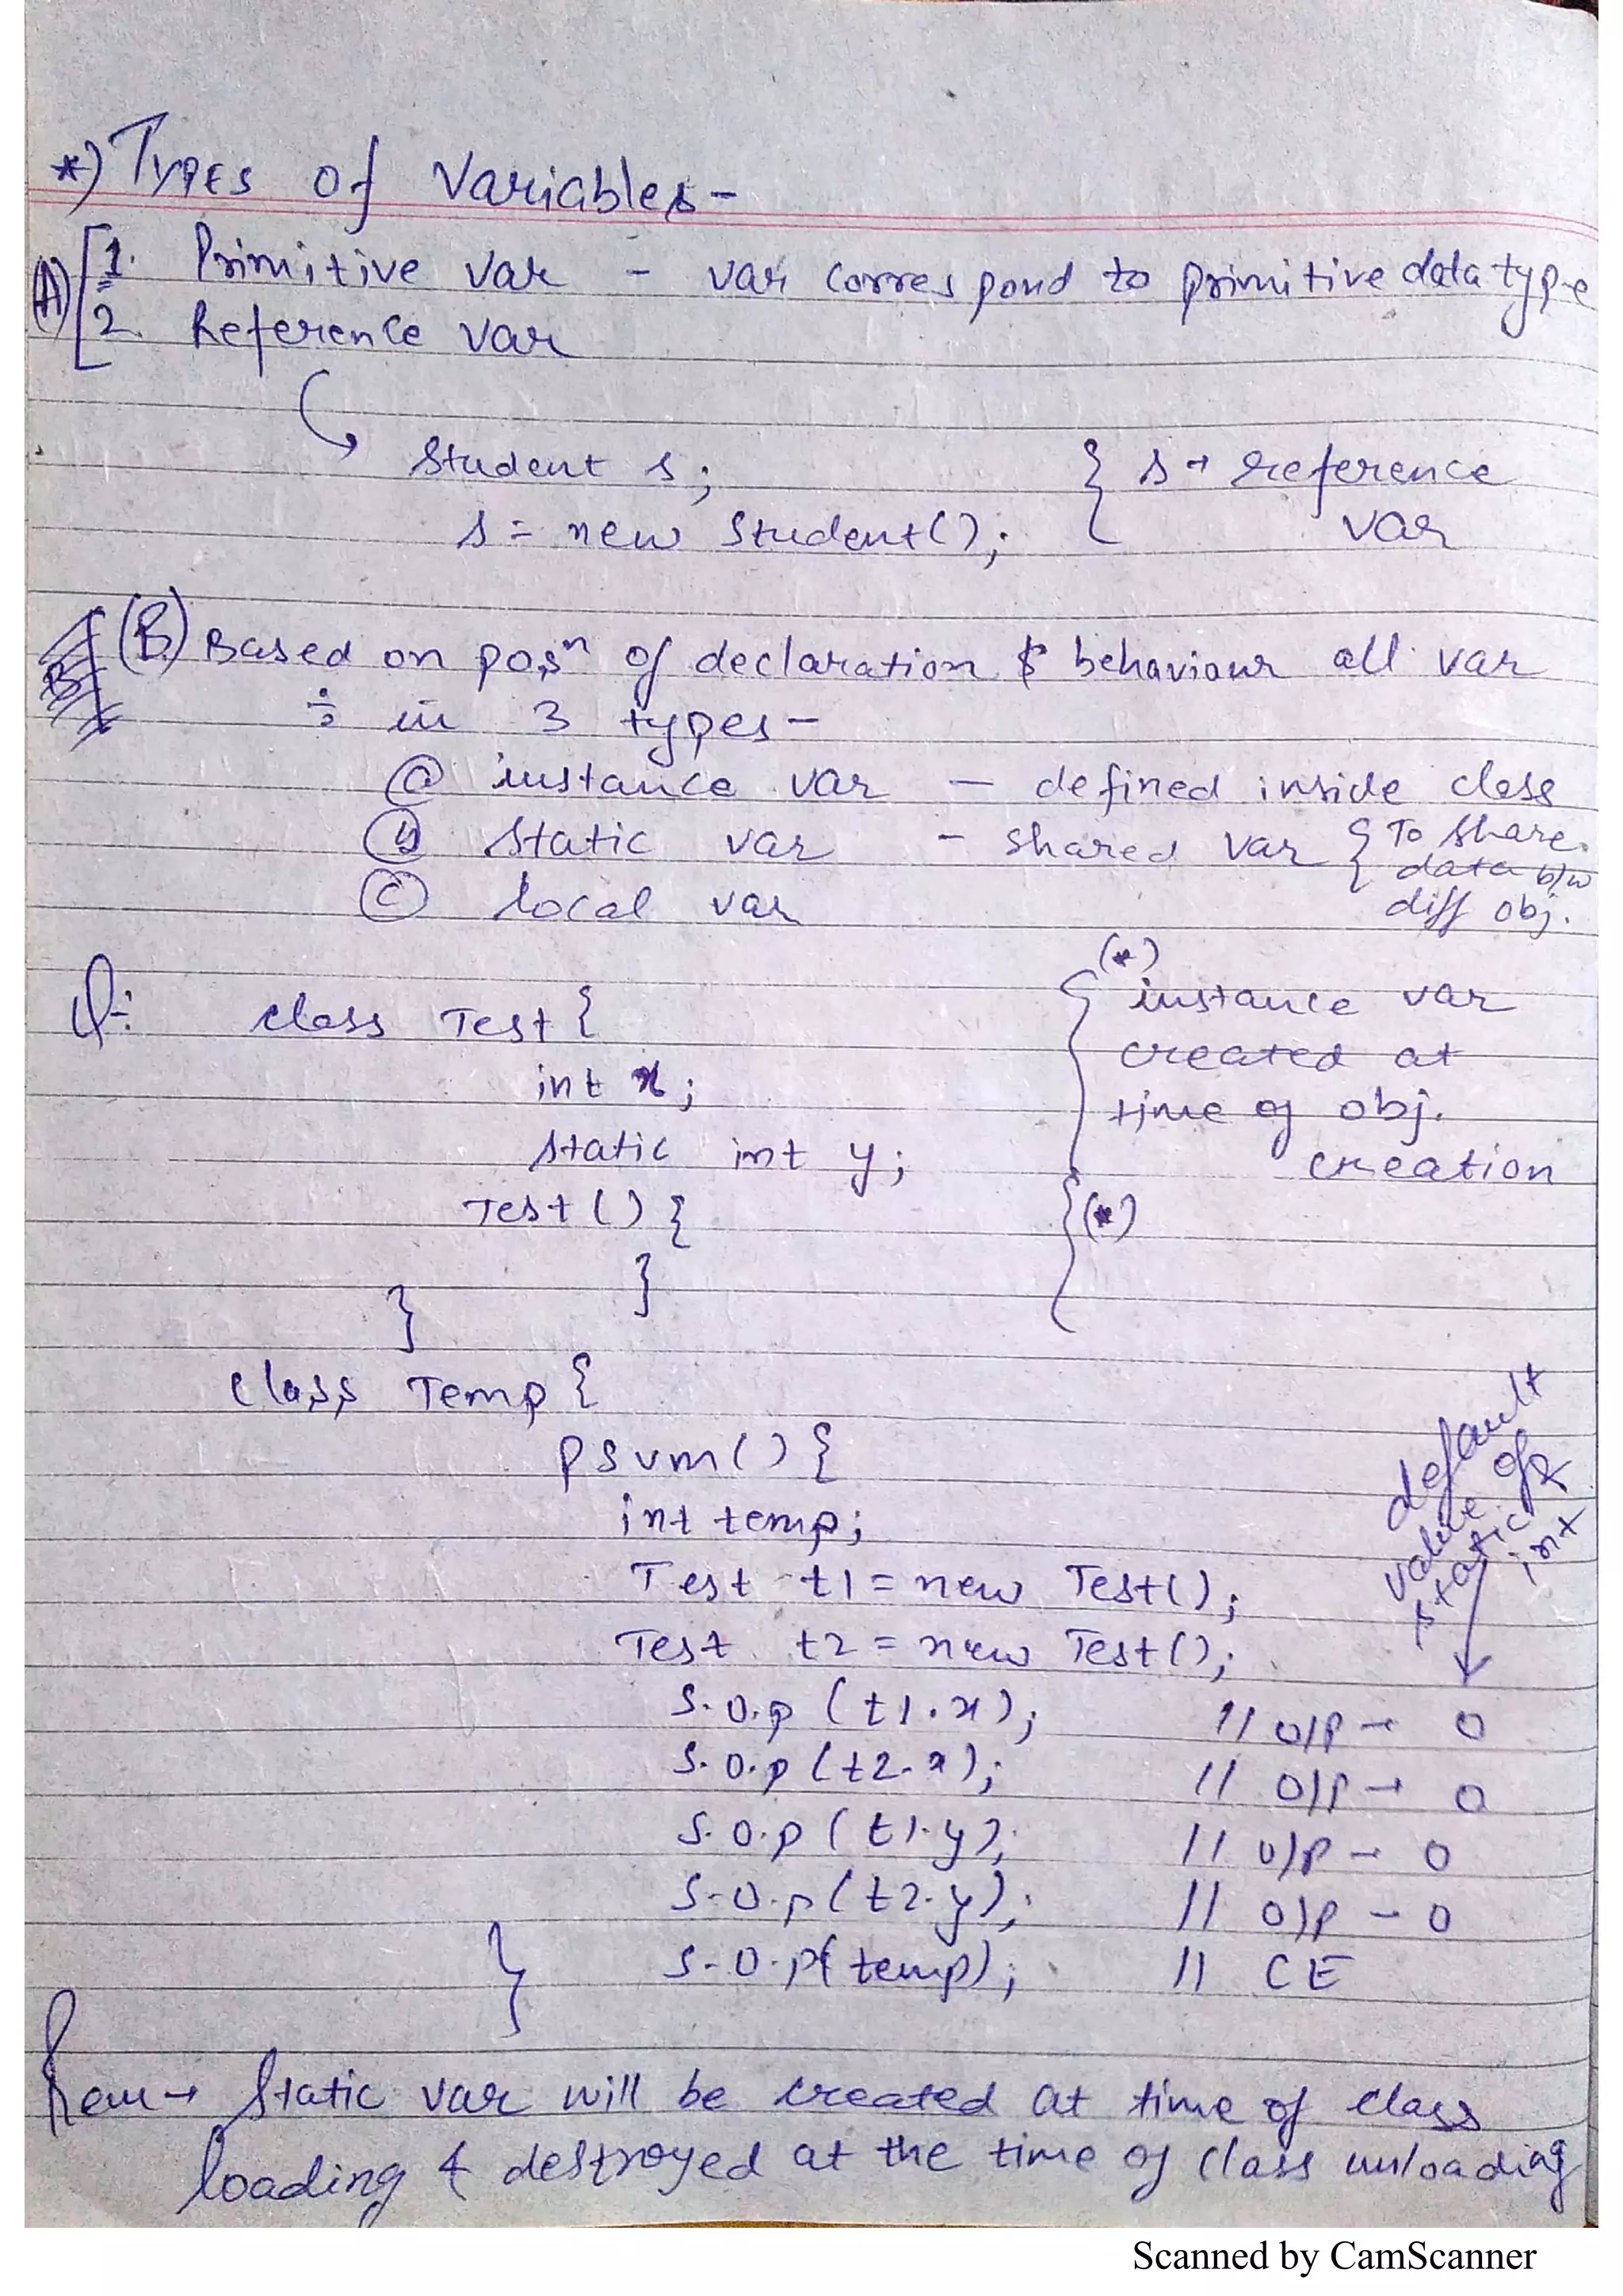 *) Types of Variables -
(A) [1. Primitive var - var correspond to primitive data type
2. Reference var
Student s; { s → reference
s = new Student(); var
B (B) Based on posn of declaration & behaviour all var
÷ in 3 types -
(a) instance var - defined inside class
(b) static var - shared var { To share
data b/w
(c) local var diff obj.
(*)
Q: class Test { instance var
created at
int x; time of obj.
static int y; creation
Test () { (*)
}
}
class Temp {
psvm() {
int temp;
Test t1 = new Test();
Test t2 = new Test();
default
value of
static
int
S.O.p (t1.x); // O/P → 0
S.O.p (t2.x); // O/P → 0
S.O.p (t1.y); // O/P → 0
S.O.p (t2.y); // O/P - 0
S.O.p( temp); // CE
}
Rem → Static var will be created at time of class
loading & destroyed at the time of class unloading
Scanned by CamScanner